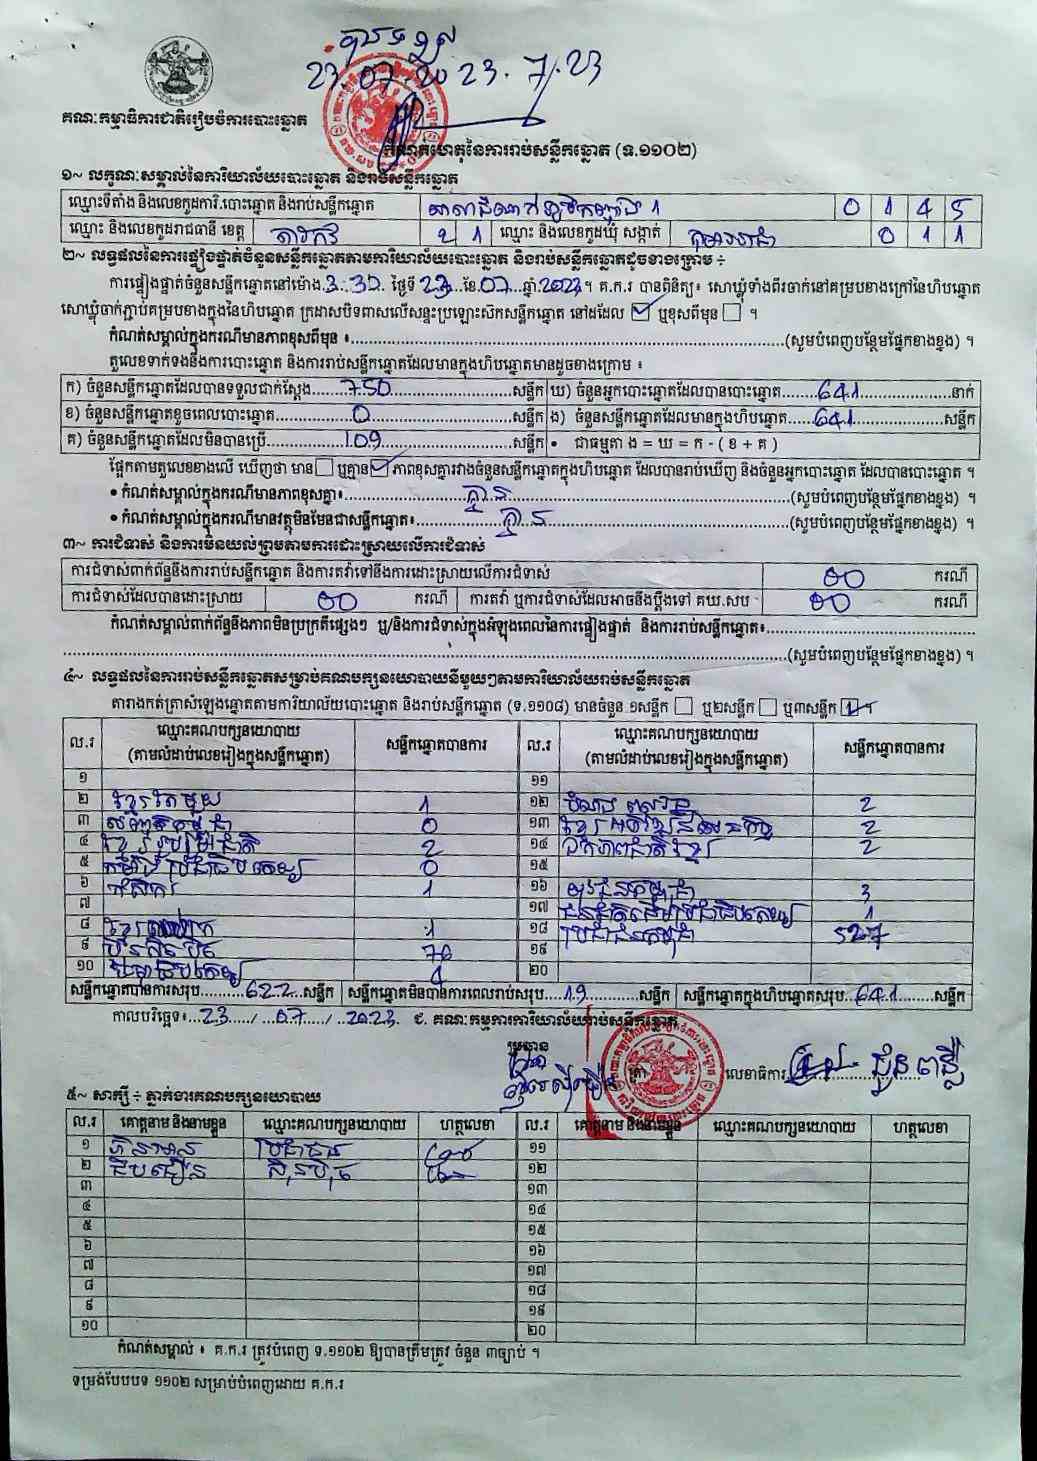 23.07.2023. 7.23
គណៈកម្មាធិការជាតិរៀបចំការបោះឆ្នោត
កំណត់ហេតុនៃការរាប់សន្លឹកឆ្នោត (ទ.១១០២)
១~ លក្ខណៈសម្គាល់នៃការិយាល័យបោះឆ្នោត និងរាប់សន្លឹកឆ្នោត
ឈ្មោះទីតាំង និងលេខកូដការិ.បោះឆ្នោត និងរាប់សន្លឹកឆ្នោត 0 1 4 5
ឈ្មោះ និងលេខកូដរាជធានី ខេត្ត តាកែវ 2 1 ឈ្មោះ និងលេខកូដឃុំ សង្កាត់ 0 1 1
២~ លទ្ធផលនៃការផ្ទៀងផ្ទាត់ចំនួនសន្លឹកឆ្នោតតាមការិយាល័យបោះឆ្នោត និងរាប់សន្លឹកឆ្នោតដូចខាងក្រោម ÷
ការផ្ទៀងផ្ទាត់ចំនួនសន្លឹកឆ្នោតនៅម៉ោង.3:30. ថ្ងៃទី 23...ខែ.07...ឆ្នាំ.2023។ គ.ក.រ បានពិនិត្យ៖ សោឃ្លុំទាំងពីរចាក់នៅគម្របខាងក្រៅនៃហិបឆ្នោត
សោឃ្លុំចាក់ភ្ជាប់គម្របខាងក្នុងនៃហិបឆ្នោត ក្រដាសបិទពាសលើសន្ទះប្រឡោះស៊កសន្លឹកឆ្នោត នៅដដែល ☑ ឬខុសពីមុន ☐ ។
កំណត់សម្គាល់ក្នុងករណីមានភាពខុសពីមុន ៖...(សូមបំពេញបន្ថែមផ្នែកខាងខ្នង) ។
តួលេខទាក់ទងនឹងការបោះឆ្នោត និងការរាប់សន្លឹកឆ្នោតដែលមានក្នុងហិបឆ្នោតមានដូចខាងក្រោម ៖
ក) ចំនួនសន្លឹកឆ្នោតដែលបានទទួលជាក់ស្តែង.....750.....សន្លឹក ឃ) ចំនួនអ្នកបោះឆ្នោតដែលបានបោះឆ្នោត.....641.....នាក់
ខ) ចំនួនសន្លឹកឆ្នោតខូចពេលបោះឆ្នោត.....0.....សន្លឹក ង) ចំនួនសន្លឹកឆ្នោតដែលមានក្នុងហិបឆ្នោត.....641.....សន្លឹក
គ) ចំនួនសន្លឹកឆ្នោតដែលមិនបានប្រើ.....109.....សន្លឹក • ជាធម្មតា ង = ឃ = ក - ( ខ + គ )
ផ្អែកតាមតួលេខខាងលើ ឃើញថា មាន ☐ ឬគ្មាន ☑ ភាពខុសគ្នារវាងចំនួនសន្លឹកឆ្នោតក្នុងហិបឆ្នោត ដែលបានរាប់ឃើញ និងចំនួនអ្នកបោះឆ្នោត ដែលបានបោះឆ្នោត ។
• កំណត់សម្គាល់ក្នុងករណីមានភាពខុសគ្នា៖.....គ្មាន.....(សូមបំពេញបន្ថែមផ្នែកខាងខ្នង) ។
• កំណត់សម្គាល់ក្នុងករណីមានវត្ថុមិនមែនជាសន្លឹកឆ្នោត៖.....គ្មាន.....(សូមបំពេញបន្ថែមផ្នែកខាងខ្នង) ។
៣~ ការជំទាស់ និងការមិនយល់ព្រមតាមការដោះស្រាយលើការជំទាស់
ការជំទាស់ពាក់ព័ន្ធនឹងការរាប់សន្លឹកឆ្នោត និងការតវ៉ាទៅនឹងការដោះស្រាយលើការជំទាស់ 00 ករណី
ការជំទាស់ដែលបានដោះស្រាយ 00 ករណី ការតវ៉ា ឬការជំទាស់ដែលអាចនឹងប្តឹងទៅ គឃ.សប 00 ករណី
កំណត់សម្គាល់ពាក់ព័ន្ធនឹងភាពមិនប្រក្រតីផ្សេងៗ ឬ/និងការជំទាស់ក្នុងអំឡុងពេលនៃការផ្ទៀងផ្ទាត់ និងការរាប់សន្លឹកឆ្នោត៖...
...(សូមបំពេញបន្ថែមផ្នែកខាងខ្នង) ។
៤~ លទ្ធផលនៃការរាប់សន្លឹកឆ្នោតសម្រាប់គណបក្សនយោបាយនីមួយៗតាមការិយាល័យរាប់សន្លឹកឆ្នោត
តារាងកត់ត្រាសំឡេងឆ្នោតតាមការិយាល័យបោះឆ្នោត និងរាប់សន្លឹកឆ្នោត (ទ.១១០៨) មានចំនួន ១សន្លឹក ☐ ឬ២សន្លឹក ☐ ឬ៣សន្លឹក ☑ ។
ល.រ ឈ្មោះគណបក្សនយោបាយ (តាមលំដាប់លេខរៀងក្នុងសន្លឹកឆ្នោត) សន្លឹកឆ្នោតបានការ ល.រ ឈ្មោះគណបក្សនយោបាយ (តាមលំដាប់លេខរៀងក្នុងសន្លឹកឆ្នោត) សន្លឹកឆ្នោតបានការ
១ ១១
២ ខ្មែរតែមួយ 1 ១២ 2
៣ 0 ១៣ 2
៤ ខ្មែររួបរួមជាតិ 2 ១៤ ឯកភាពជាតិខ្មែរ 2
៥ កម្ពុជា ប្រជាធិបតេយ្យ 0 ១៥
៦ កសិករ 1 ១៦ យុវជនកម្ពុជា 3
៧ ១៧ ជនជាតិដើមប្រជាធិបតេយ្យ 1
៨ 1 ១៨ ប្រជាជនកម្ពុជា 527
៩ ហ៊្វុនស៊ិនប៉ិច ១៩
១០ ២០
សន្លឹកឆ្នោតបានការសរុប.....622...សន្លឹក សន្លឹកឆ្នោតមិនបានការពេលរាប់សរុប....19.....សន្លឹក សន្លឹកឆ្នោតក្នុងហិបឆ្នោតសរុប..641....សន្លឹក
កាលបរិច្ឆេទ៖...23...../...07...../..2023. ជ. គណៈកម្មការការិយាល័យរាប់សន្លឹកឆ្នោត
ប្រធាន
លេខាធិការ
៥~ សាក្សី ÷ ភ្នាក់ងារគណបក្សនយោបាយ
ល.រ គោត្តនាម និងនាមខ្លួន ឈ្មោះគណបក្សនយោបាយ ហត្ថលេខា ល.រ គោត្តនាម និងនាមខ្លួន ឈ្មោះគណបក្សនយោបាយ ហត្ថលេខា
១ ប្រជាជន ១១
២ ១២
៣ ១៣
៤ ១៤
៥ ១៥
៦ ១៦
៧ ១៧
៨ ១៨
៩ ១៩
១០ ២០
កំណត់សម្គាល់ ៖ គ.ក.រ ត្រូវបំពេញ ទ.១១០២ ឱ្យបានត្រឹមត្រូវ ចំនួន ៣ច្បាប់ ។
ទម្រង់បែបបទ ១១០២ សម្រាប់បំពេញដោយ គ.ក.រ